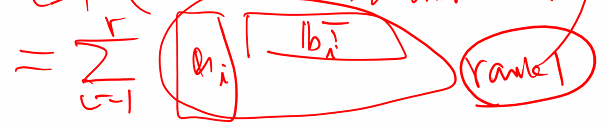 = \sum_{i=1}^{r} a_i b_i^T rank 1